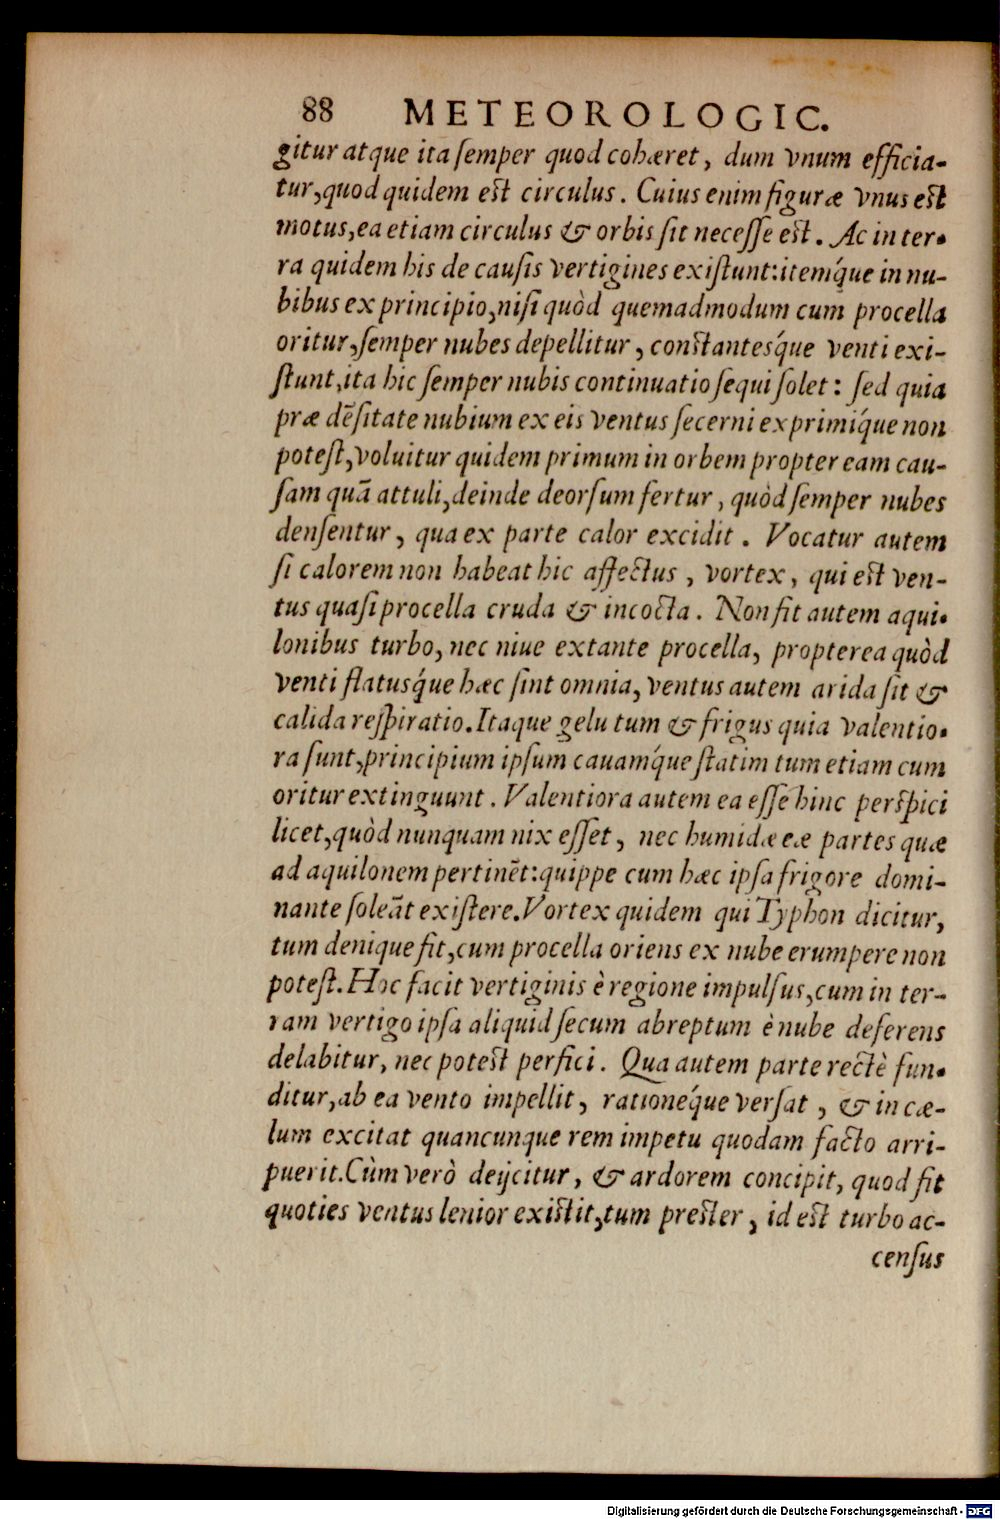 88 METEOROLOGIC.
gitur atque ita ſemper quod cohæret, dum vnum efficia-
tur, quod quidem est circulus. Cuius enim figuræ vnus est
motus, ea etiam circulus & orbis ſit neceſſe est. Ac in ter-
ra quidem his de cauſis vertigines exiſtunt: itemq́ue in nu-
bibus ex principio, niſi quòd quemadmodum cum procella
oritur, ſemper nubes depellitur, constantesq́ue venti exi-
ſtunt, ita hic ſemper nubis continuatio ſequi ſolet: ſed quia
præ dẽſitate nubium ex eis ventus ſecerni exprimiq́ue non
poteſt, voluitur quidem primum in orbem propter eam cau-
ſam quã attuli, deinde deorſum fertur, quòd ſemper nubes
denſentur, qua ex parte calor excidit. Vocatur autem
ſi calorem non habeat hic affectus, vortex, qui est ven-
tus quaſi procella cruda & incocta. Non fit autem aqui-
lonibus turbo, nec niue extante procella, propterea quòd
venti flatusq́ue hæc ſint omnia, ventus autem arida ſit &
calida reſpiratio. Itaque gelu tum & frigus quia valentio-
ra ſunt, principium ipſum cauamq́ue ſtatim tum etiam cum
oritur extinguunt. Valentiora autem ea eſſe hinc perſpici
licet, quòd nunquam nix eſſet, nec humidæ eæ partes quæ
ad aquilonem pertinẽt: quippe cum hæc ipſa frigore domi-
nante ſoleãt exiſtere. Vortex quidem qui Typhon dicitur,
tum denique fit, cum procella oriens ex nube erumpere non
poteſt. Hoc facit vertiginis è regione impulſus, cum in ter-
ram vertigo ipſa aliquid ſecum abreptum è nube deferens
delabitur, nec potest perfici. Qua autem parte rectè fun-
ditur, ab ea vento impellit, rationeq́ue verſat, & in cæ-
lum excitat quancunque rem impetu quodam facto arri-
puerit. Cùm verò deijcitur, & ardorem concipit, quod fit
quoties ventus lenior existit, tum prester, id est turbo ac-
cenſus
Digitalisierung gefördert durch die Deutsche Forschungsgemeinschaft - DFG